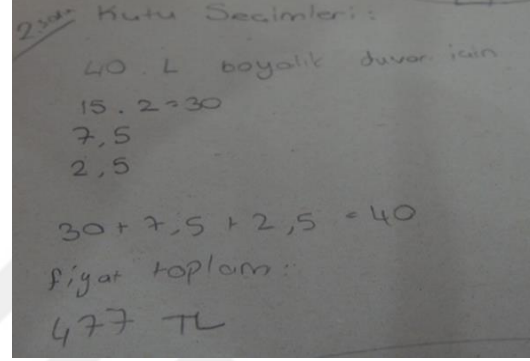 2.soru Kutu Secimleri:
40 L boyalık duvar icin
15.2=30
7,5
2,5
30+7,5+2,5=40
fiyat toplam:
477 TL